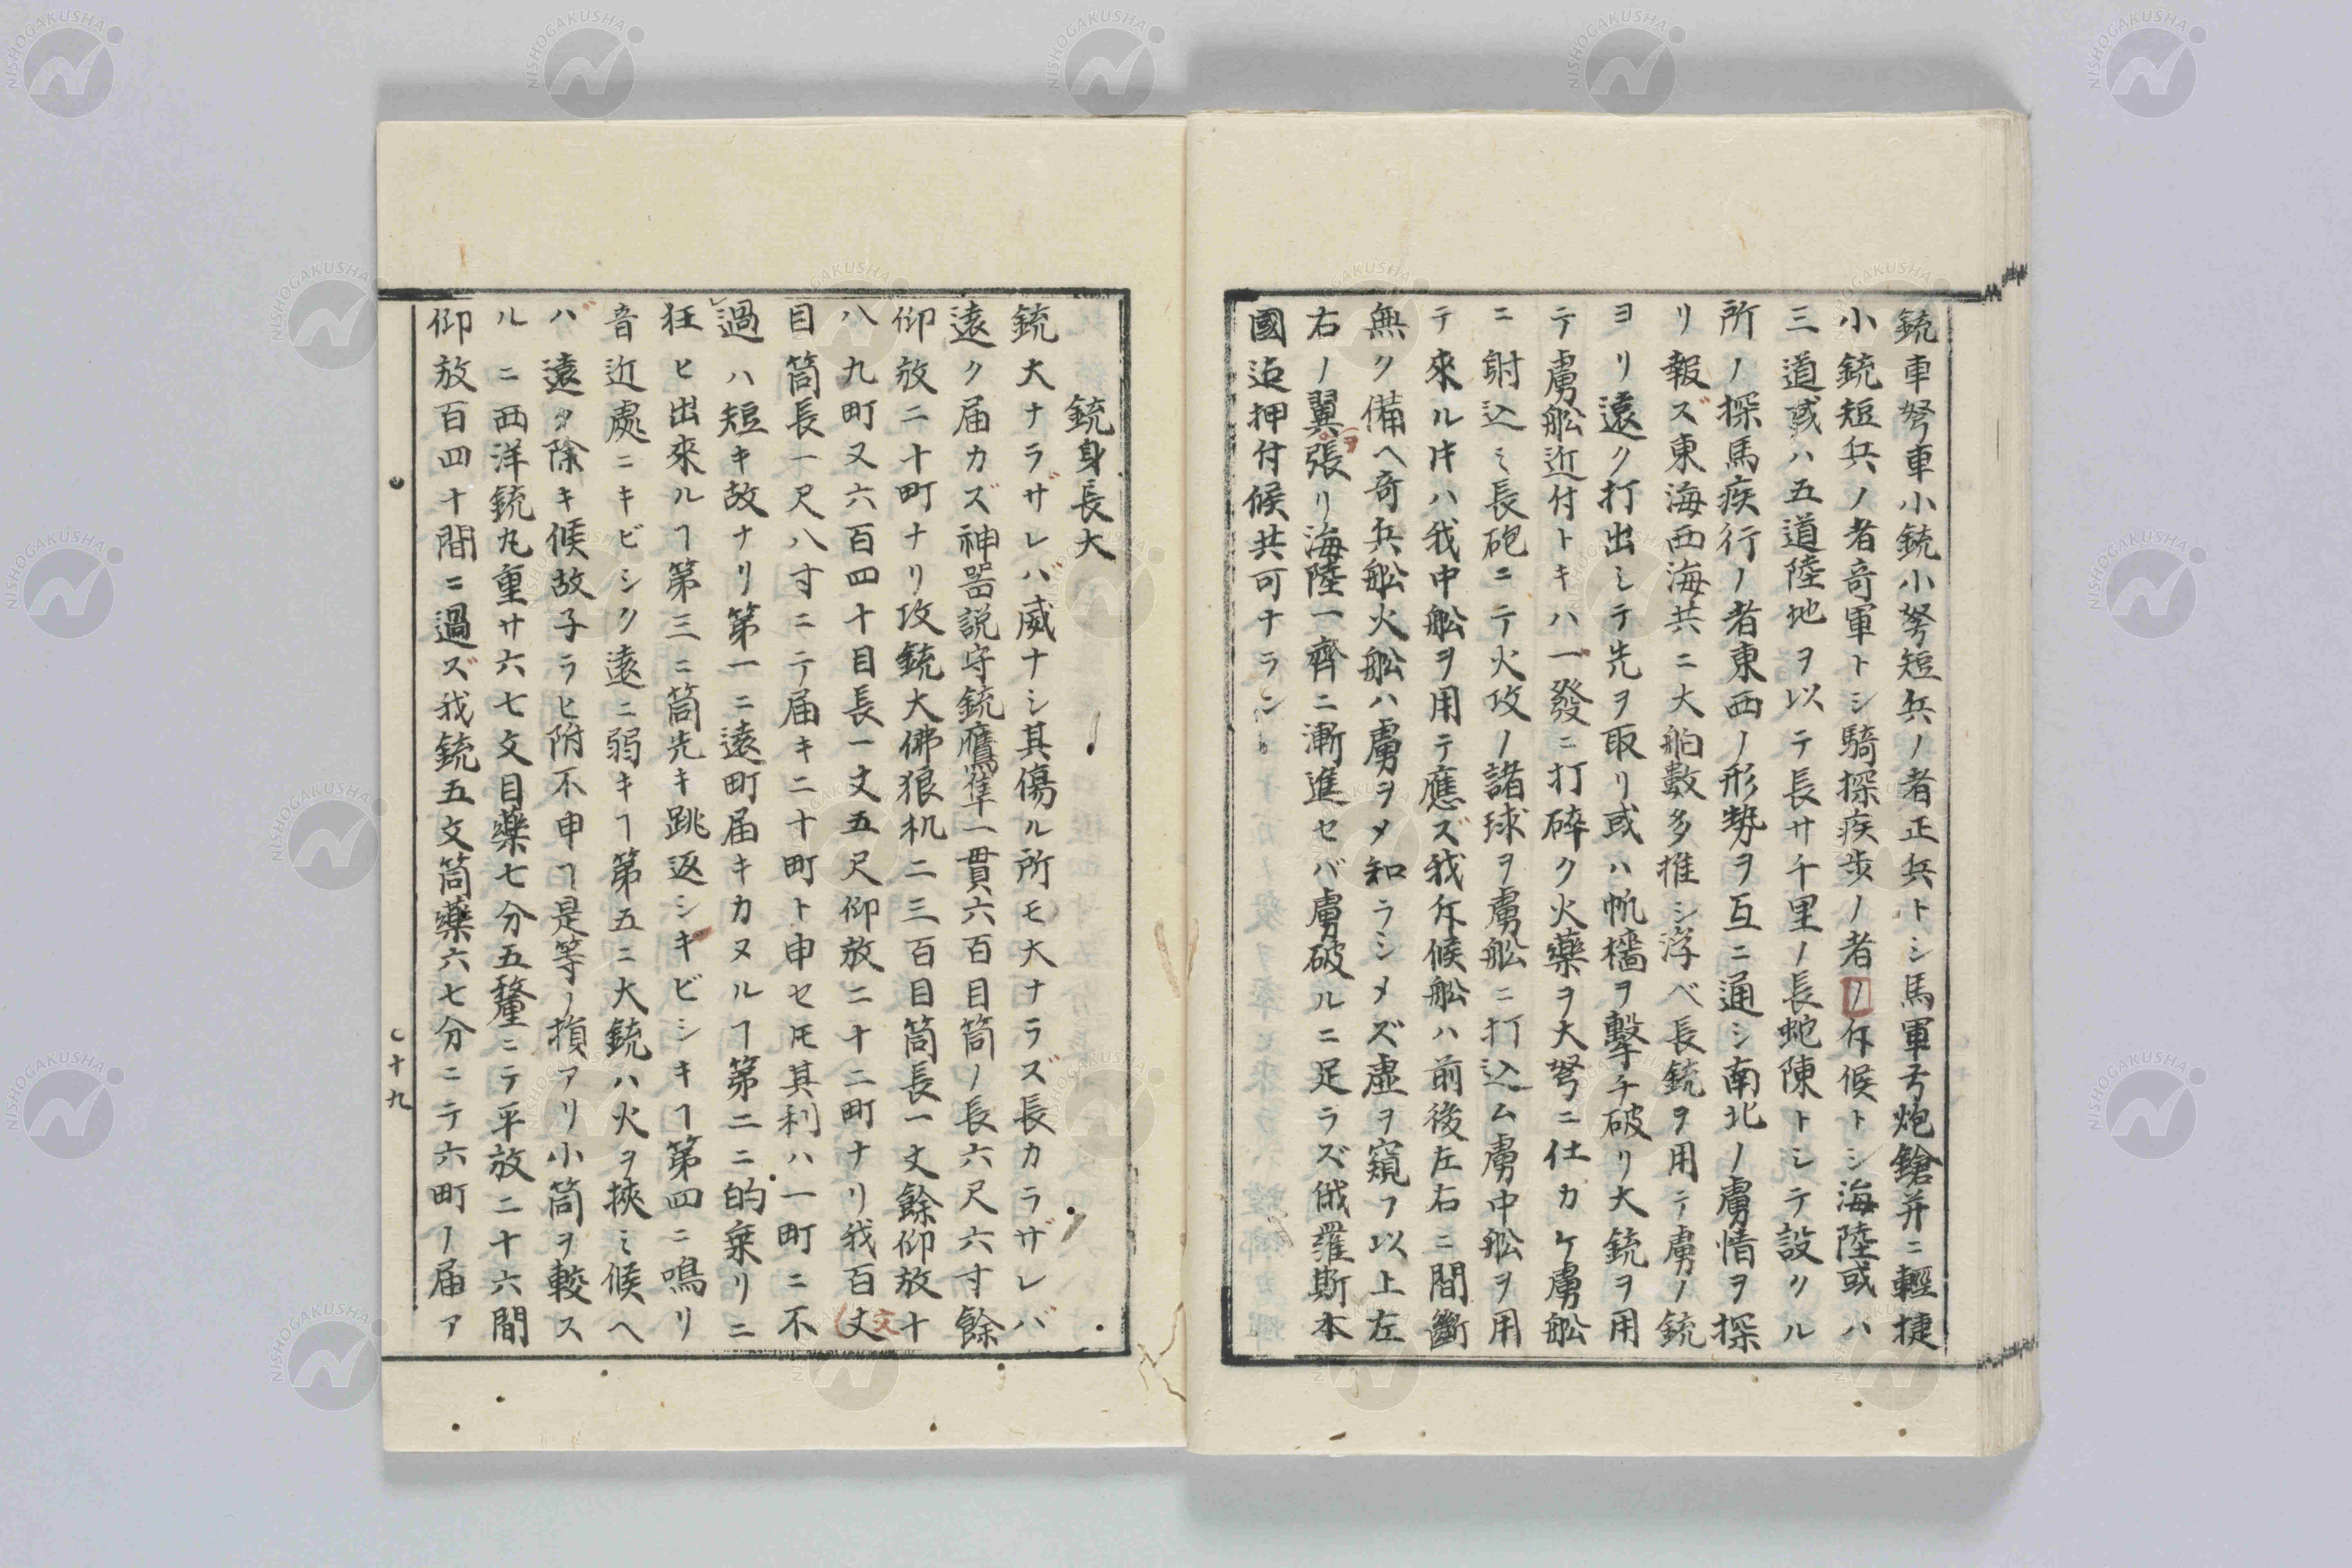 銃車弩車小銃小弩短兵ノ者正兵トシ馬軍弓炮鎗并ニ輕捷
小銃短兵ノ者竒軍トシ騎探疾歩ノ者ノ斥候トシ海陸或ハ
三道或ハ五道陸地ヲ以テ長サ千里ノ長蛇陳トシテ設クル
所ノ探馬疾行ノ者東西ノ形勢ヲ互ニ通シ南北ノ虜情ヲ探
リ報ズ東海西海共ニ大舶數多推シ浮べ長銃ヲ用テ虜ノ銃
ヨリ遠ク打出シテ先ヲ取リ或ハ帆檣ヲ擊チ破リ大銃ヲ用
テ虜舩近付トキハ一發ニ打碎ク火藥ヲ大弩ニ仕カケ虜舩
ニ射込ミ長砲ニテ火攻ノ諸球ヲ虜舩ニ打込ム虜中舩ヲ用
テ來ル
ハ我中舩ヲ用テ應ズ我斥候舩ハ前後左右ニ間斷
無ク備ヘ竒兵舩火舩ハ虜ヲメ知ラシメズ虚ヲ窺フ以上左
右ノ翼ヲ張リ海陸一齊ニ漸進セバ虜破ルニ足ラズ俄羅斯本
國迠押付候共可ナラン
銃身長大
銃大ナラザレバ威ナシ其傷ル所モ大ナラズ長カラザレバ
遠ク届カズ神器説守銃鷹隼一貫六百目筒ノ長六尺六寸餘
仰放二十町ナリ攻銃大佛狼机二三百目筒長一丈餘仰放十
八九町又六百四十目長一丈五尺仰放二十二町ナリ我百丈文
目筒長一尺八寸ニテ届キ二十町ト申セ𪜈其利ハ一町ニ不
過ハ短キ故ナリ第一ニ遠町届キカヌルヿ第二ニ的乗リニ
狂ヒ出來ルヿ第三ニ筒先キ跳返シキビシキヿ第四ニ鳴リ
音近處ニキビシク遠ニ弱キヿ第五ニ大銃ハ火ヲ挾ミ候ヘ
バ遠ク除キ候故子ラヒ附不申ヿ是等ノ損アリ小筒ヲ較ス
ルニ西洋銃丸重サ六七文目藥七分五釐ニテ平放二十六間
仰放百四十間ニ過ズ我銃五文筒藥六七分ニテ六町ノ届ア
十九
NISHOGAKUSHA